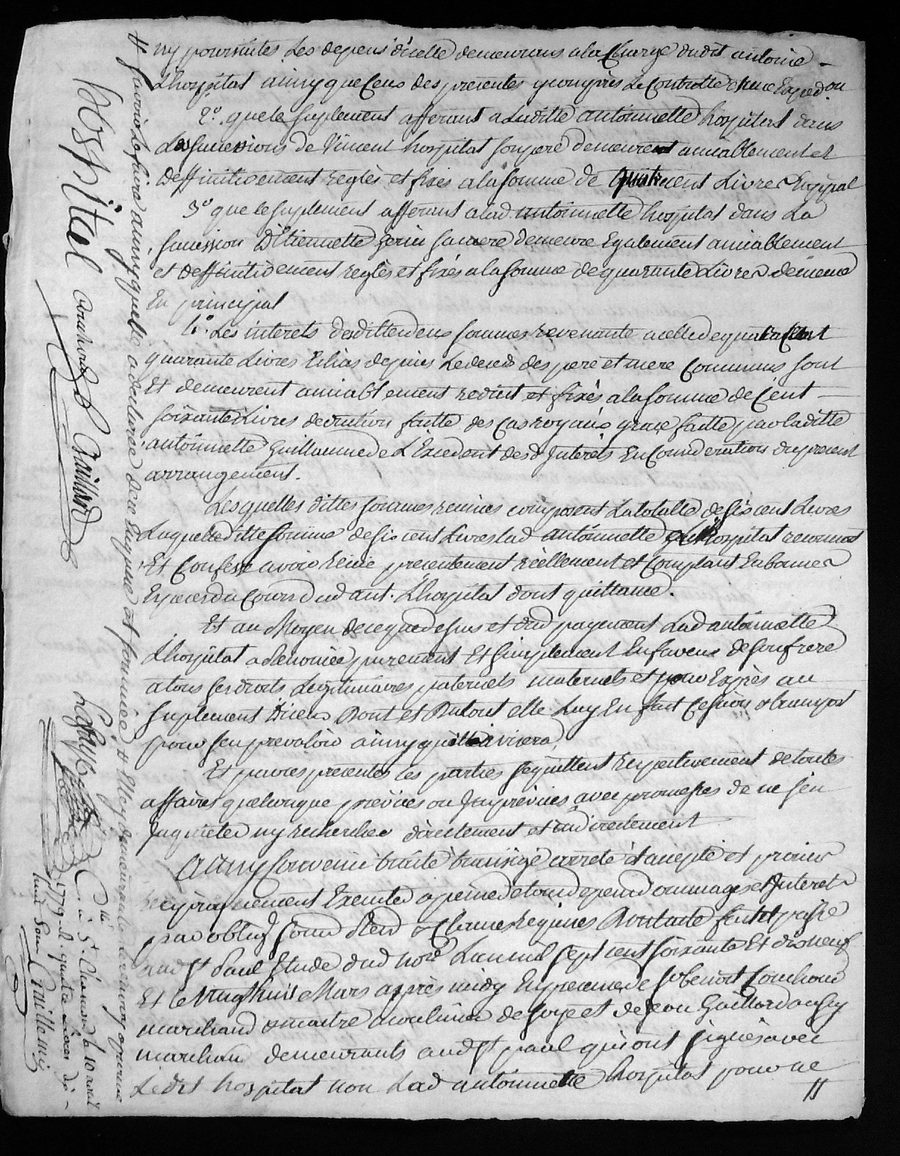 ny poursuites Les depens d'icelle demeurans a la Charge dudit antoine
Lhospital ainsy que Ceux des presentes y compris Le Controlle & une Exped.on
2°. que le suplement afferant a Laditte antoinnette hospital dans
La succession de Vincent hospital son pere demeure amiablement et
Deffinitivement reglés et fixés a la somme de quatre cent Livres En principal
3° que le suplement afferant a lad antoinnette hospital dans La
succession D'Etiennette sa mere demeure Egalement amiablement
et deffinitivement reglés et fixés a la somme de quarante Livres de meme
En principal
4°. Les interets desdittes deux sommes revenante a celle de quatre Cent
quarante Livres Echus depuis Le deces des pere et mere Communs sont
Et demeurent amiablement reduit et fixés a la somme de Cent
soixante Livres deduction faitte des Cas royaux grace faitte par laditte
antoinnette Guillaume de L'Excedent desd Interets En Consideration du present
arrangement.
Lesquelles dittes sommes reunies composent La totalle de six cent Livres
Laquelle ditte somme de six cent Livres Lad antoinnette hospital reconnoit
Et Confesse avoir Reçue presentement réellement et Comptant En bonnes
Especes du Cours dud ant. Lhospital dont quittance.
Et au Moyen de ce que dessus et dud payement Lad antoinnette
Lhospital a Renoncée purement Et simplement En faveur de son frere
a tous ses droits Legitimaires paternels maternels et par Exprès au
suplement D'iceux Dont et Du tout elle Luy En fait Cession & transport
pour s'en prevaloir ainsy qu'il avisera.
Et par ces presentes les parties se quittent respectivement de toutes
affaires quelconque prevües ou Imprévües avec promesses de ne s'en
Inquieter ny rechercher directement et indirectement
Ainsy Convenu traité transigé arreté & accepté et promis
reciproquement Executé a peine de tous depens dommages et Interets
par oblig.on soum.on Renon.on & Clauses Requises Dont acte fait et passé
aud St Paul Etude dud nore. L'an mil sept cent soixante Et dix neuf
Et le Vingt huit Mars après midy En presence de sr benoit Couchoud
marchand & maitre moulinier de soye et de Jean Gaillard aussy
marchand demeurants aud st paul qui ont signés avec
Ledit hospital non Lad antoinnette hospital pour ne
scavoir Le faire ainsy quelle a declarée de ce Enquise et sommée
hospital Couchoud Gaillard
C.lle à St Chamond le 10 avril
1779. R. quatre Livres dix